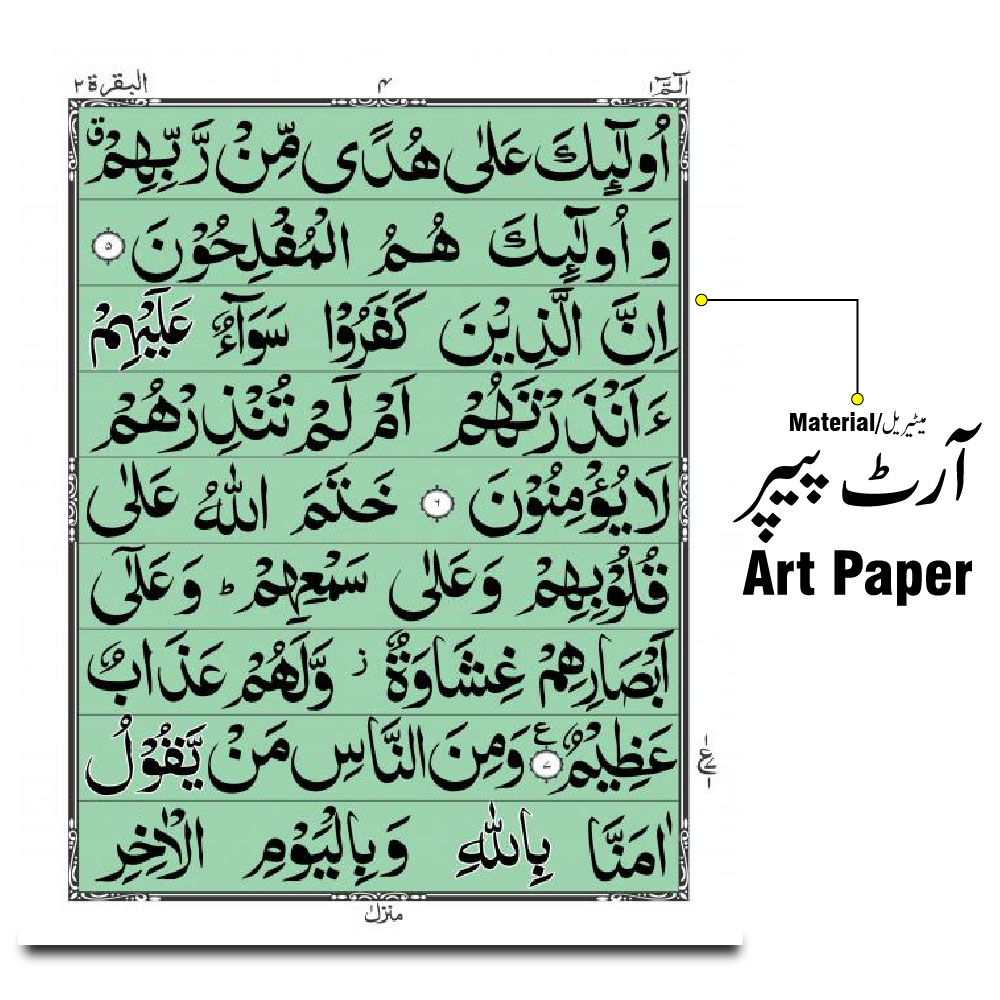 الٓمّٓ ١
۴
البقرة ٢
اُولٰٓئِكَ عَلٰى هُدًى مِّنْ رَّبِّهِمْ ق
وَ اُولٰٓئِكَ هُمُ الْمُفْلِحُوْنَ ۵
اِنَّ الَّذِيْنَ كَفَرُوْا سَوَآءٌ عَلَيْهِمْ
ءَاَنْذَرْتَهُمْ اَمْ لَمْ تُنْذِرْهُمْ
لَا يُؤْمِنُوْنَ ۶ خَتَمَ اللّٰهُ عَلٰى
قُلُوْبِهِمْ وَعَلٰى سَمْعِهِمْ ط وَعَلٰٓى
اَبْصَارِهِمْ غِشَاوَةٌ ز وَّلَهُمْ عَذَابٌ
عَظِيْمٌ ۷ ع وَمِنَ النَّاسِ مَنْ يَّقُوْلُ
اٰمَنَّا بِاللّٰهِ وَبِالْيَوْمِ الْاٰخِرِ
منزل ١
Material/میٹیریل
آرٹ پیپر
Art Paper